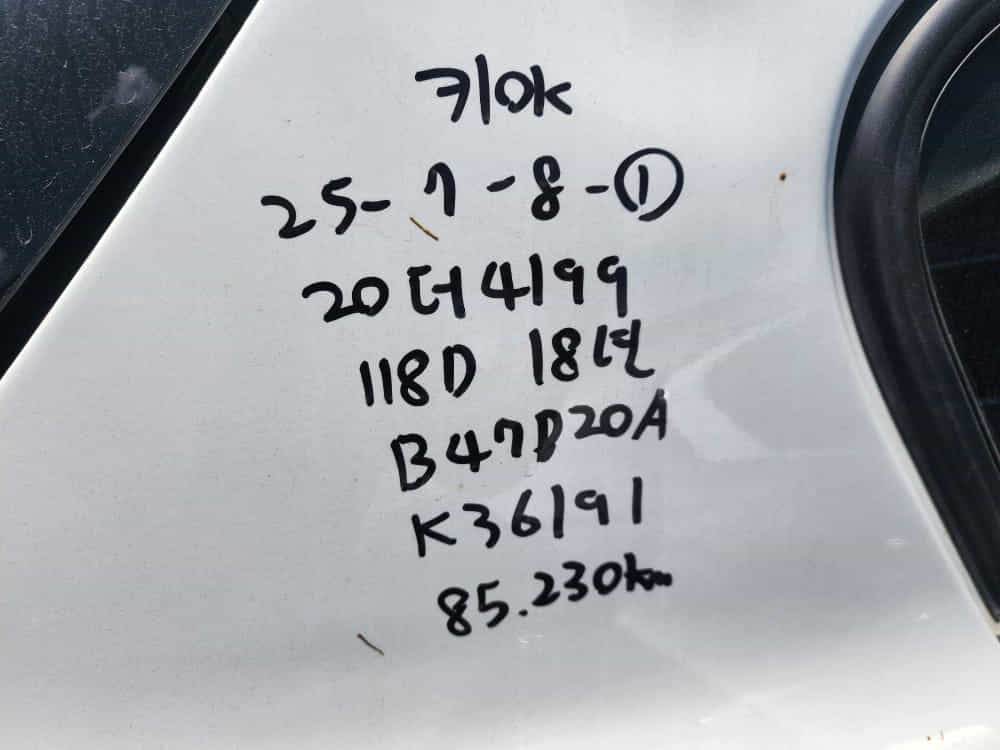 기OK
25-7-8-①
20더4199
118D 18년
B47D20A
K36191
85.230km